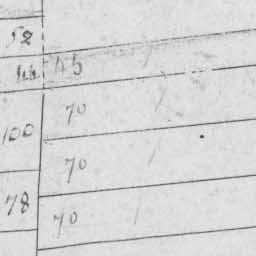 52
44 45
70
100
70
78
70